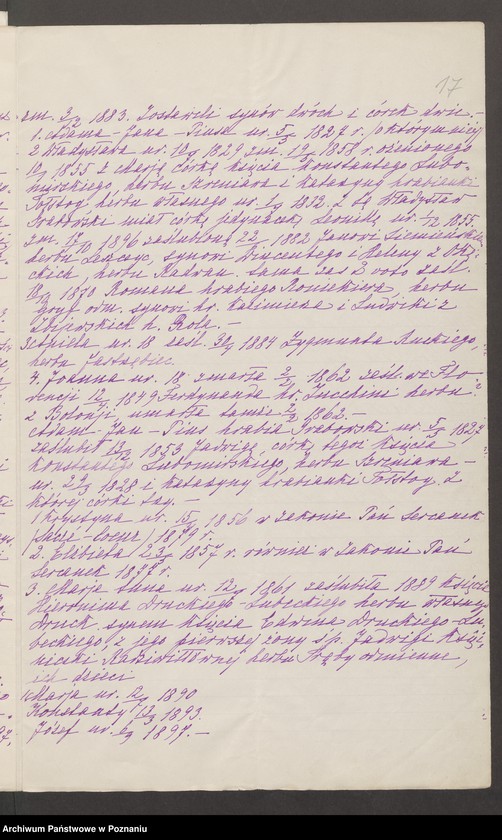 17
zm. 3/2 1883. Zostawili synów dwóch i córek dwie.-
1. Adama-Jana-Piusa ur. 5/5 1827 r. po którym niżej
2 Władysława ur. 1829 zm. 19/3 1858 r. ożenionego
1855 z Marją córką księcia Konstantego Lubo-
mirskiego, herbu Szreniawa i Katarzyny hrabianki
Tołstoy herbu własnego ur. 1832. z tą Władysław
Grabowski miał córkę jedynaczkę Leonilę ur. 1855.
zm. 1896 zaślubioną 22 1882 Janowi Siemieńskiemu
herbu Leszczyc, synowi Wincentego i Heleny z
ckich, herbu Radwan sama zaś 2 voto zaśl.
1870 Romana hrabiego Ronikiera, herbu
Gryf odm. synowi hr. Kazimierza i Ludwiki z
h. Rola.-
3. ur. 18 zaśl. 30 1884 Zygmunta Ruckiego,
herbu Jastrzębiec
4. Joanna ur. 18 zmarła 2/2 1862 zaśl. we Flo-
rencji 1849 Ferdynanda hr. Zucchini herbu ?
z Bolonji umarła tamże 2/2 1862.-
Adam-Jan-Pius hrabia Grabowski ur. 5/5 1827
zaślubił 1853 Jadwigę córkę tegoż księcia
Konstantego Lubomirskiego, herbu Szreniawa-
ur. 1828 i Katarzyny hrabianki Tołstoy. Z
której córki są.-
1 Krystyna ur. 15 1856 w Zakonie Pań Sercanek
/Sacré-Coeur/ 1879 r.
2. Elżbieta 23 1857 r. również w Zakonie Pań
Sercanek 1877 r.
3. Marja Anna ur. 12 1861 zaślubiła 1889 księcia
Hieronima Druckiego-Lubeckiego herbu własnego
Druck synem księcia Edwina Druckiego-Lu-
beckiego, z jego pierwszej żony s.p. Jadwigi księż-
niczki Radziwiłłówny herbu Trąby odmienne,
ich dzieci
1 Marja ur. 1890
Konstanty 13 1893.
Józef ur. 1897.-
Archiwum Państwowe w Poznaniu